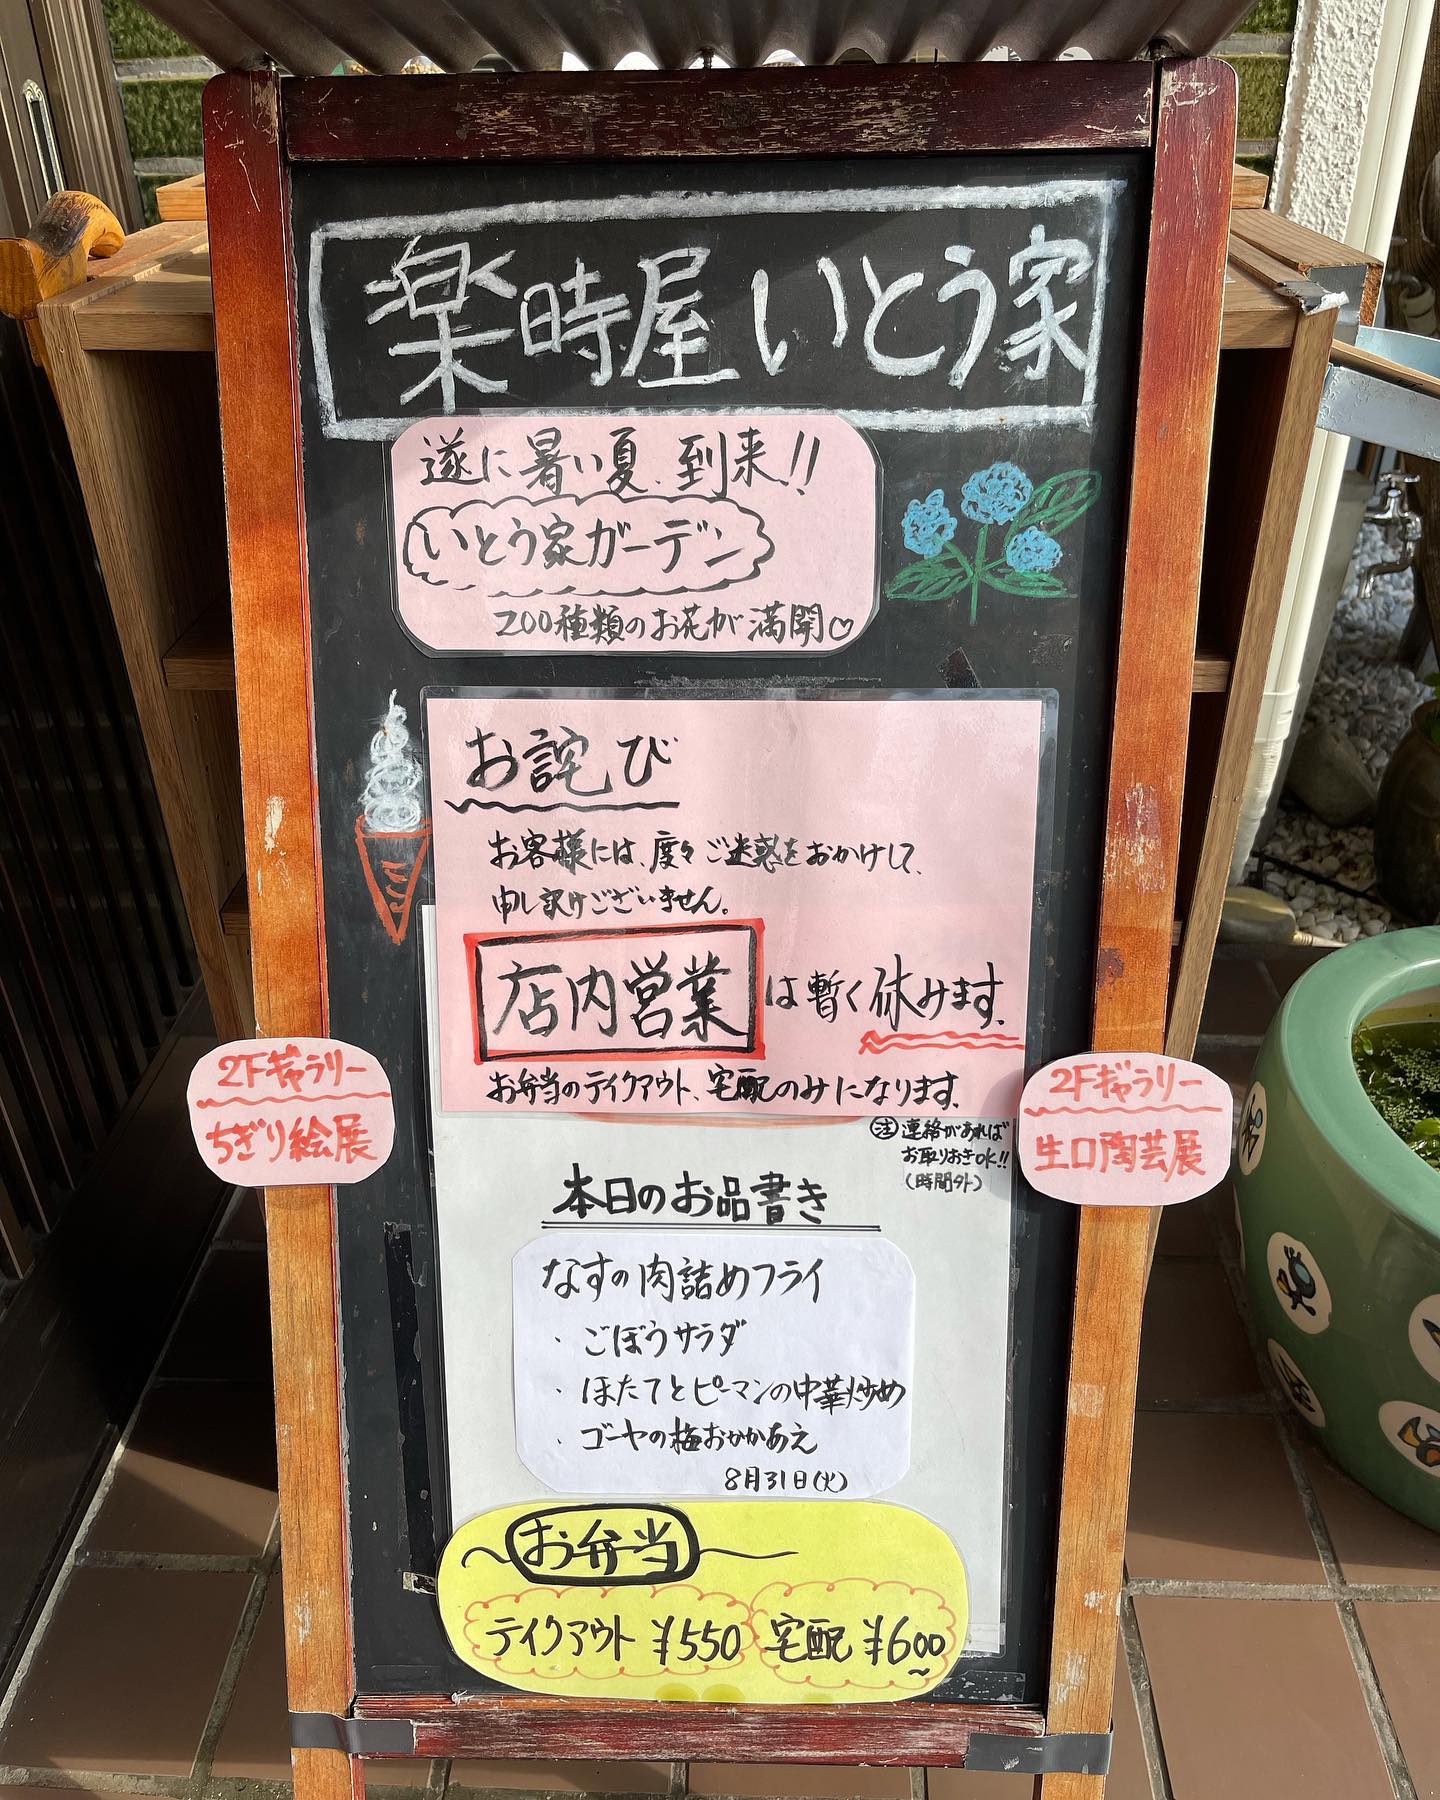 楽時屋 いとう家
遂に暑い夏、到来!!
いとう家ガーデン
200種類のお花が満開♡
お詫び
お客様には、度々ご迷惑をおかけして、
申し訳けございません。
店内営業は暫く休みます。
お弁当のテイクアウト、宅配のみになります。
注 連絡があれば
お取りおきOK!!
(時間外)
2Fギャラリー
ちぎり絵展
2Fギャラリー
生口陶芸展
本日のお品書き
なすの肉詰めフライ
・ごぼうサラダ
・ほたてとピーマンの中華炒め
・ゴーヤの梅おかかあえ
8月31日(火)
お弁当
テイクアウト ¥550 宅配 ¥600~